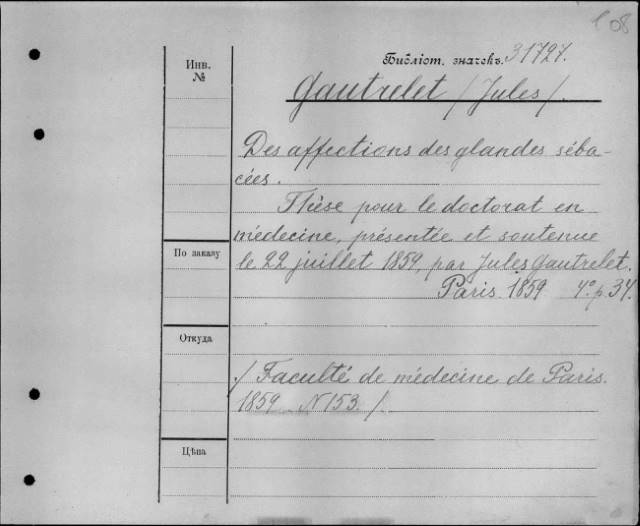 108
Инв. №
Библіот. значекъ 31727.
Gautrelet / Jules /.
Des affections des glandes séba-
cées.
Thèse pour le doctorat en
médecine, présentée et soutenue
По заказу
le 22 juillet 1859, par Jules Gautrelet.
Paris. 1859 4º p. 34.
Откуда
/ Faculté de médecine de Paris.
1859. N 153. /.
Цѣна